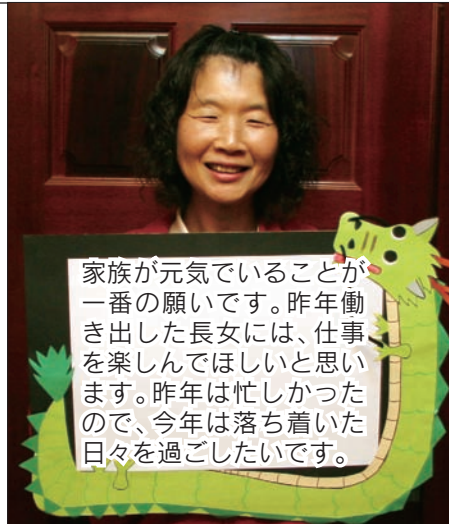 家族が元気でいることが
一番の願いです。昨年働
き出した長女には、仕事
を楽しんでほしいと思い
ます。昨年は忙しかった
ので、今年は落ち着いた
日々を過ごしたいです。